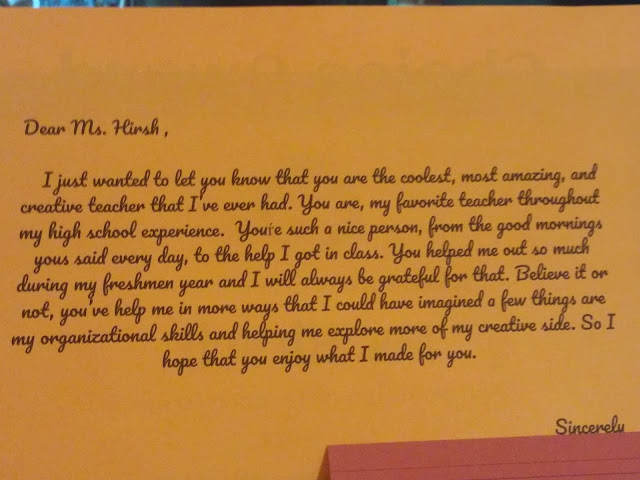 Dear Ms. Hirsh ,
I just wanted to let you know that you are the coolest, most amazing, and
creative teacher that I've ever had. You are, my favorite teacher throughout
my high school experience. You're such a nice person, from the good mornings
yous said every day, to the help I got in class. You helped me out so much
during my freshmen year and I will always be grateful for that. Believe it or
not, you've help me in more ways that I could have imagined a few things are
my organizational skills and helping me explore more of my creative side. So I
hope that you enjoy what I made for you.
Sincerely